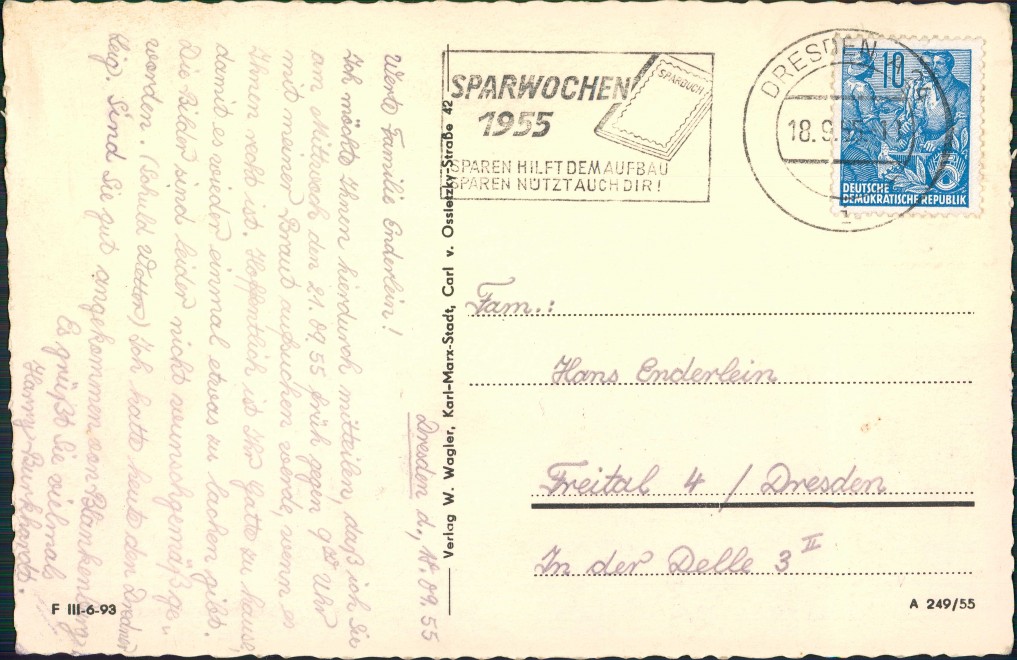 Dresden d., 18.09.55
Werte Familie Enderlein!
Ich möchte Ihnen hierdurch mitteilen, daß ich Sie
am Mittwoch den 21.09.55 früh gegen 9⁰⁰ Uhr
mit meiner Braut aufsuchen werde, wenn es
Ihnen recht ist. Hoffentlich ist Ihr Gatte zu Hause,
damit es wieder einmal etwas zu lachen gibt.
Die Bilder sind leider nicht wunschgemäß ge-
worden. (Schuld Wetter) Ich hatte heute den Dresdner
Sind Sie gut angekommen von Blankenburg
Es grüßt Sie vielmals
Harry Burkhardt.
F III-6-93
Verlag W. Wagler, Karl-Marx-Stadt, Carl v. Ossietzky-Straße 42
SPARWOCHEN
1955
SPARBUCH
SPAREN HILFT DEM AUFBAU
SPAREN NÜTZT AUCH DIR!
DRESDEN
18.9.55
10
DEUTSCHE
DEMOKRATISCHE REPUBLIK
Fam.:
Hans Enderlein
Freital 4 / Dresden
In der Delle 3 II
A 249/55